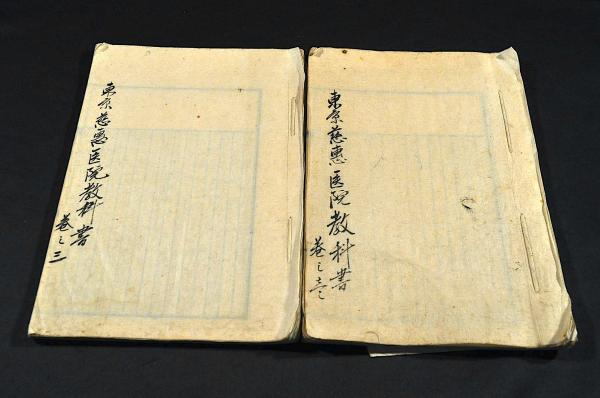 東京慈惠医院教科書
巻之壱
東京慈惠医院教科書
巻之三